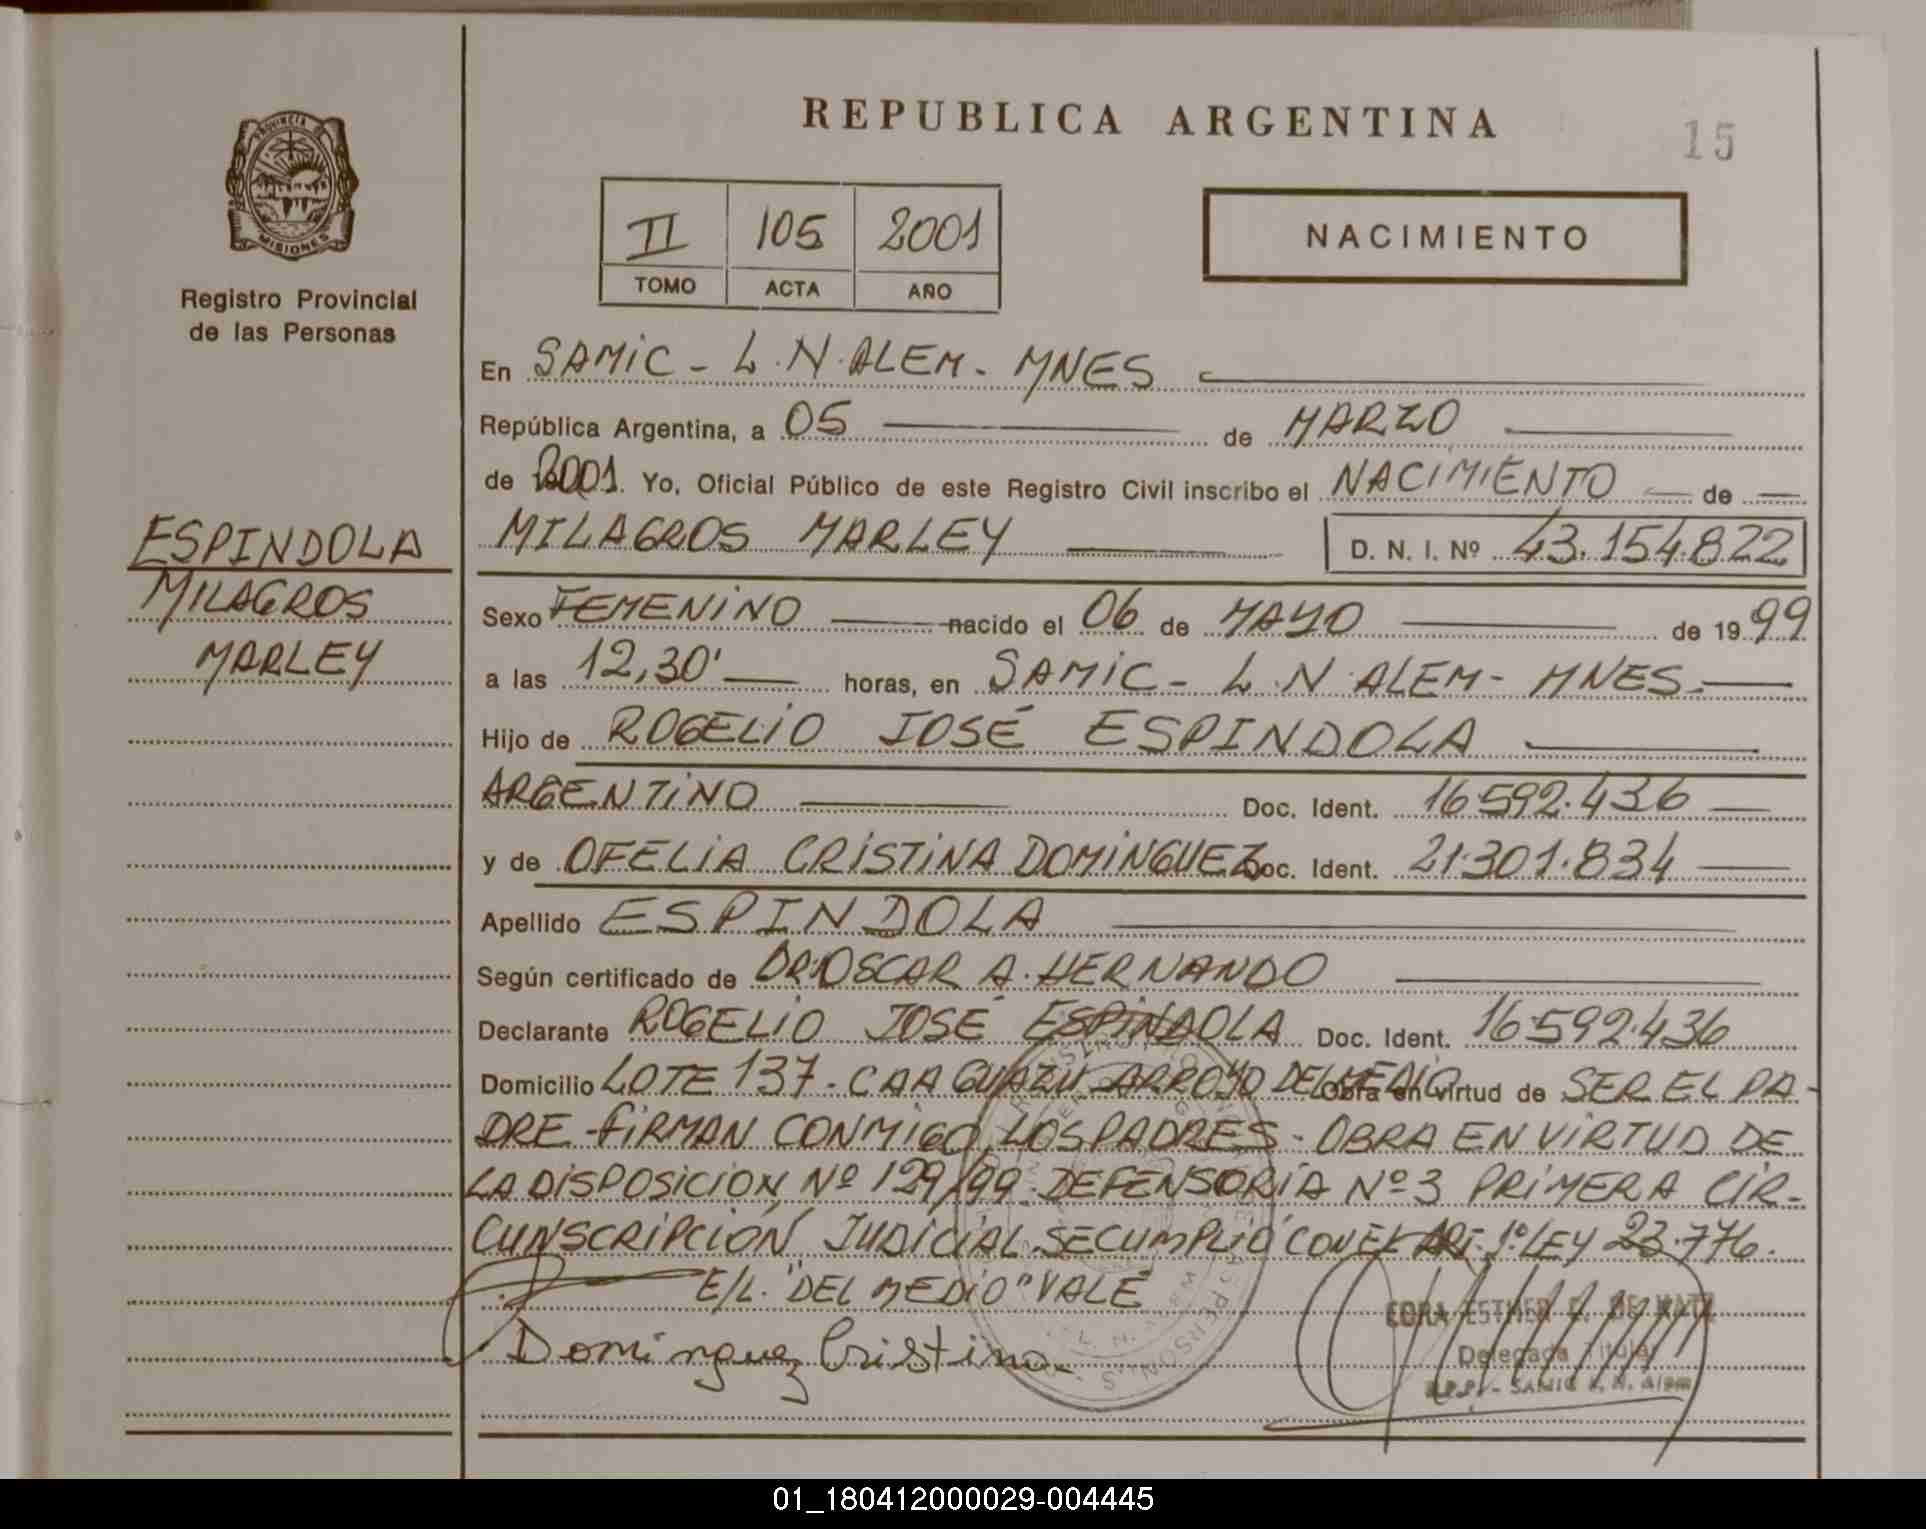 REPUBLICA ARGENTINA
15
PROVINCIA DE
MISIONES
Registro Provincial
de las Personas
II 105 2001
TOMO ACTA AÑO
NACIMIENTO
En SAMIC - L.N.ALEM - MNES
República Argentina, a 05 de MARZO
de 2001. Yo, Oficial Público de este Registro Civil inscribo el NACIMIENTO de
MILAGROS MARLEY D. N. I. Nº 43.154.822
ESPINDOLA
MILAGROS
MARLEY
Sexo FEMENINO nacido el 06 de MAYO de 1999
a las 12,30' horas, en SAMIC - L.N ALEM - MNES.
Hijo de ROGELIO JOSÉ ESPINDOLA
ARGENTINO Doc. Ident. 16.592.436
y de OFELIA CRISTINA DOMINGUEZ Doc. Ident. 21.301.834
Apellido ESPINDOLA
Según certificado de DR. OSCAR A. HERNANDO
Declarante ROGELIO JOSÉ ESPINDOLA Doc. Ident. 16.592.436
Domicilio LOTE 137 - CAA GUAZU ARROYO DEL MEDIO Obra en virtud de SER EL PA-
DRE - FIRMAN CONMIGO LOS PADRES - OBRA EN VIRTUD DE
LA DISPOSICIÓN Nº 129/99 DEFENSORIA Nº 3 PRIMERA CIR-
CUNSCRIPCIÓN JUDICIAL. SE CUMPLIÓ CON EL ART. 1º LEY 23.776.
E/L. "DEL MEDIO" VALE
Dominguez Cristina
ESTHER DE
Delegada Titular
R.P.P. - SAMIC L. N. Alem
01_180412000029-004445